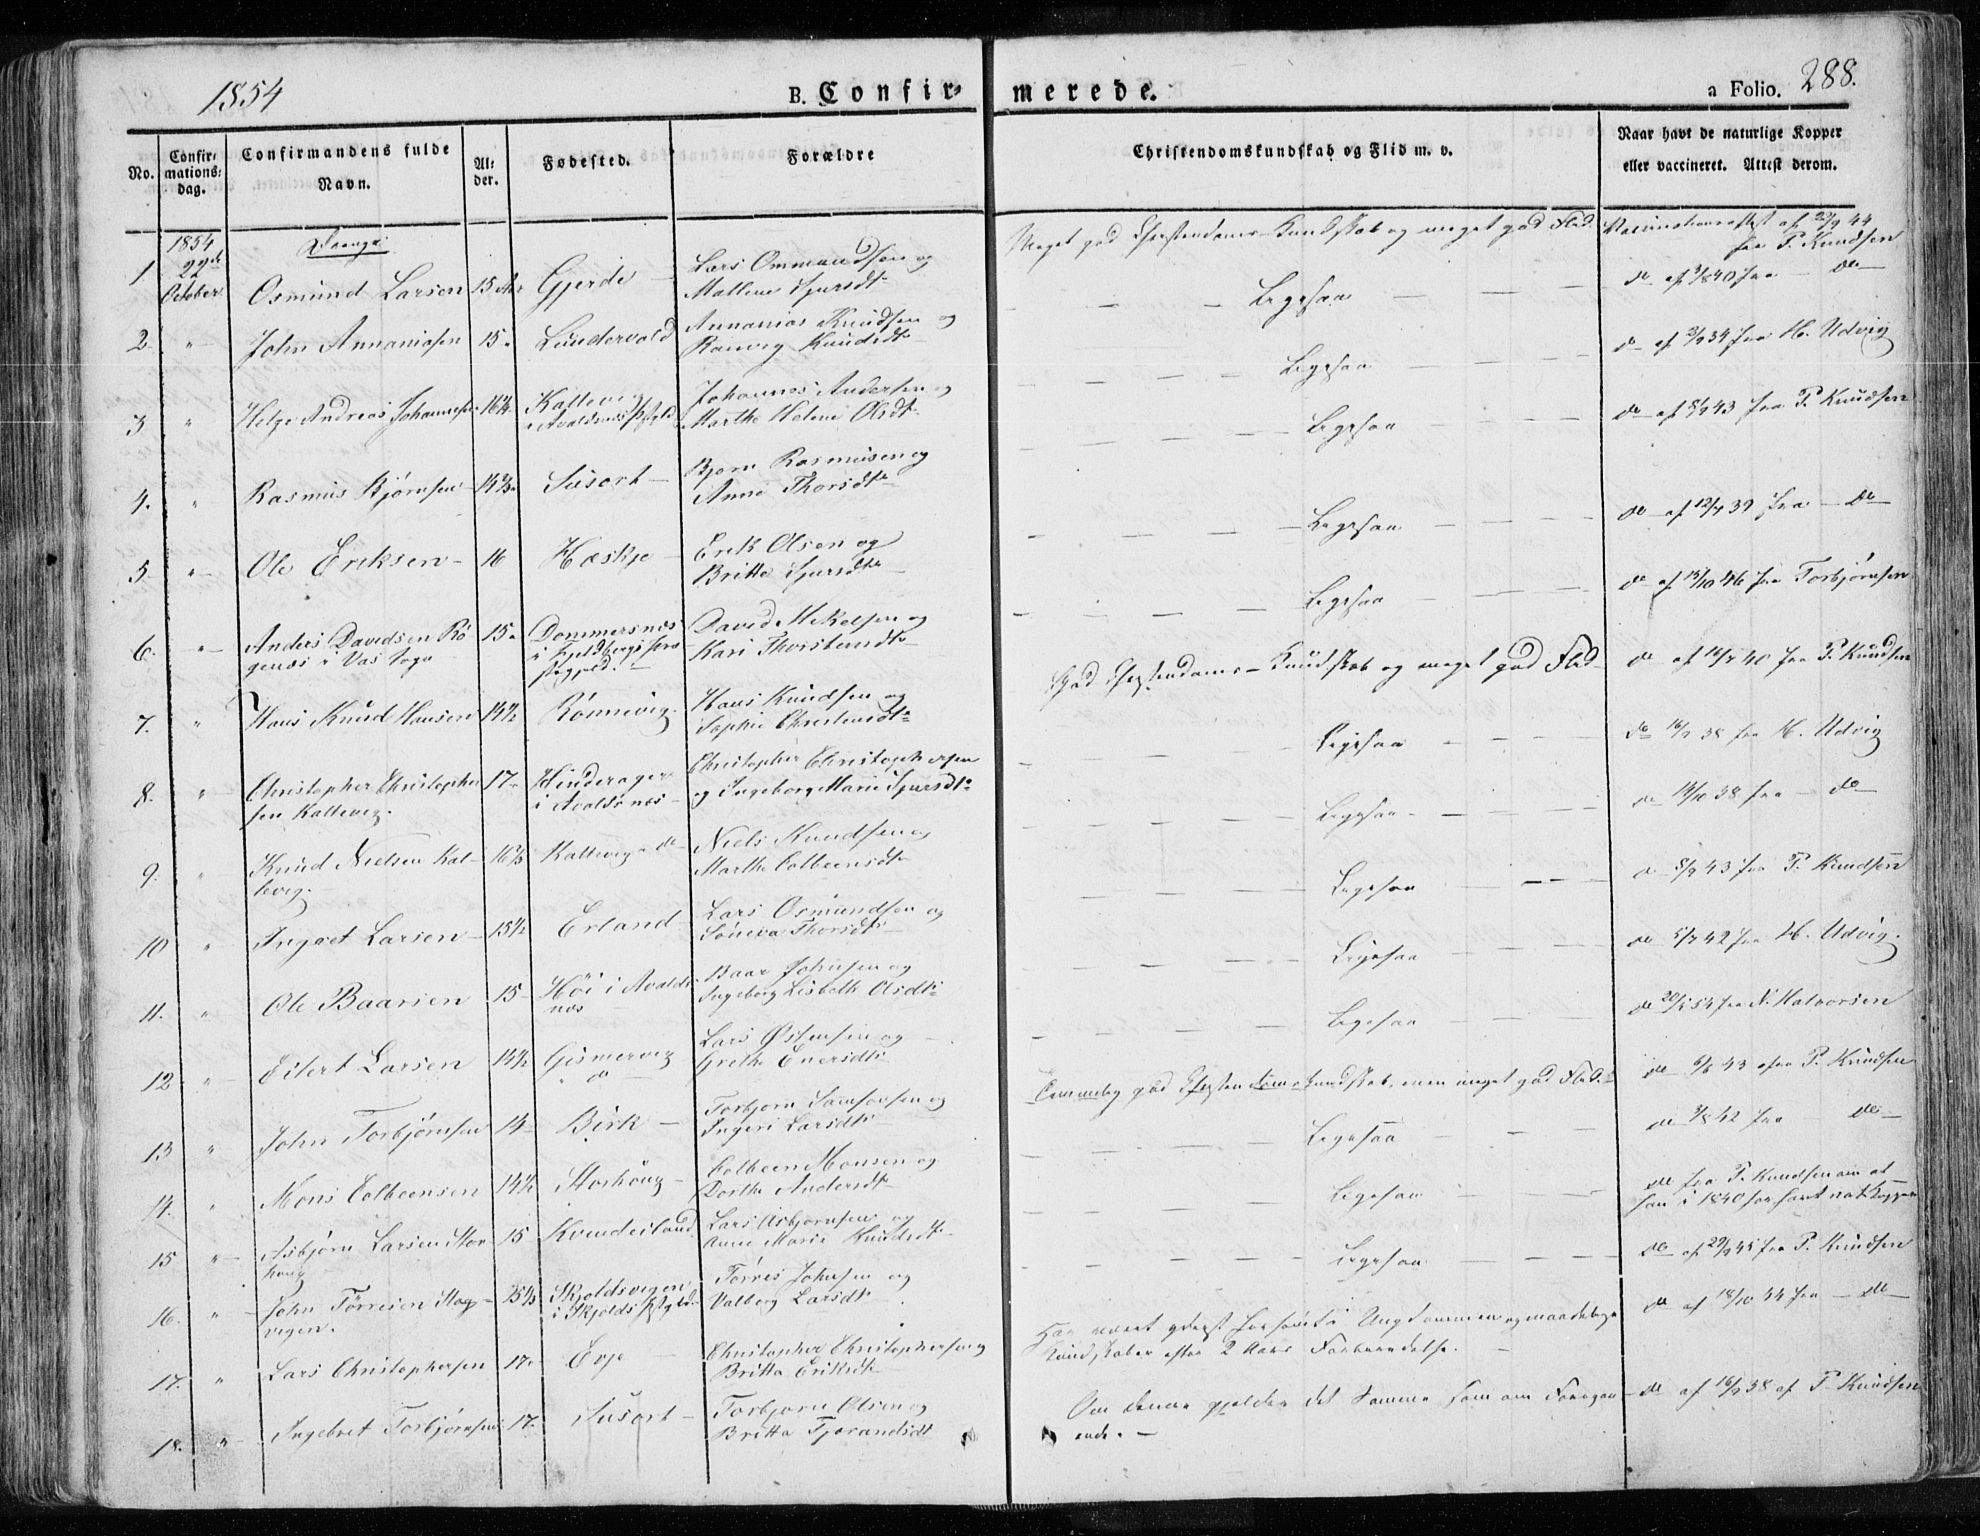 1854
B. Confirmerede.
a Folio. 288.
No.
Confirmations-dag.
Confirmandens fulde Navn.
Alder.
Fødested.
Forældre
Christendomskundskab og Flid m. v.
Naar havt de naturlige Kopper eller vaccineret. Attest derom.
1854
22de October
Drenge
1 Osmund Larsen 15 Aar Gjerde Lars Ommundsen og
Mallene Sjursdtr
Meget god Christendoms-Kundskab og meget god Flid
Vaccinationsattest af 22/9 44 fra P. Knudsen
2 " John Annaniasen 15 " Lundervold Annanias Knudsen og
Ranveig Knudsdtr
Ligesaa
do af 3/8 40 fra do
3 " Helge Andreas Johannesen 16 1/4 Kallevig i Avaldsnæs Johannes Andersen og
Marthe Helene Olsdtr
Ligesaa
do af 2/9 34 fra H. Udvig
4. " Rasmus Bjørnsen 14 Susort Bjørn Rasmusen og
Anne Thorsdtr
Ligesaa
do af 8/9 43 fra P. Knudsen
5 " Ole Eriksen 16 Hæskje Erik Olsen og
Britte Sjursdtr
Ligesaa
do af 12/7 39 fra do
6. " Anders Davidsen Røgenæs i Vas Sogn 15 " Dommersnæs i
David Mikelsen og
Kari Thorsteinsdtr
Ligesaa
do af 15/10 46 fra Torbjørnsen
7. " Hans Knud Hansen 14 1/2 Rönnevig. Hans Knudsen og
Sophie Christensdtr
God Christendoms-Kundskab og meget god Flid
do af 14/7 40 fra P. Knudsen
8. " Christopher Christophersen Kallevig. 17 " Hinderager i Avaldsnæs Christopher Christophersen
og Ingeborg Marie Sjursdtr
Ligesaa
do 16/9 38 fra H. Udvig
9. " Knud Nielsen Kallevig. 16 1/3 Kallevig " do Niels Knudsen og
Marthe Colbeensdtr
Ligesaa
do 14/10 38 fra do
10 " Ingvet Larsen 15 1/2 Erland Lars Osmundsen og
Söneva Thorsdtr
Ligesaa
do 8/9 43 fra P. Knudsen
11. " Ole Baarsen 15 Höi i Avaldsnæs Baar Johnsen og
Ingeborg Lisbeth Olsdtr
Ligesaa
do 5/7 42 fra H. Udvig.
12 " Eilert Larsen 14 1/2 Gismervig " do Lars Østensen og
Grethe Enersdtr
Ligesaa
do 20/5 54 fra N. Halvorsen
13 " John Torbjørnsen 14 Birk Torbjørn Samsonsen og
Ingeri Larsdtr
Temmelig god Christendomskundskab, men meget god Flid.
do 6/8 43 fra P. Knudsen
14. " Mons Colbeensen 14 1/2 Storhöug Colbeen Monsen og
Dorthe Andersdtr
Ligesaa
do 3/8 42 fra do
15 " Asbjørn Larsen Storhoug 15 Kvindesland Lars Asbjørnsen og
Anne Marie Knudsdtr
Ligesaa
do fra P. Knudsen om at
han i 1840 har havt nat. Kopper
16. " John Törresen 15 1/3 Skjoldsvigen i Skjolds
Törres Johnsen og
Valborg Larsdtr
Ligesaa
do af 29/9 45 fra P. Knudsen
17. " Lars Christophersen 17 " Evje Christopher Christophersen og
Britta Eriksdtr
Har været yderst forsömt i Ungdommen og maadelige
Kundskaber efter 2 Aars Forberedelse.
do af 18/10 44 fra do
18. " Ingebret Torbjørnsen 17 " Susort Torbjørn Olsen og
Britta Fjorandsdtr
Om denne gjelder det Samme som om Foregaaende.
do af 16/9 38 af P. Knudsen